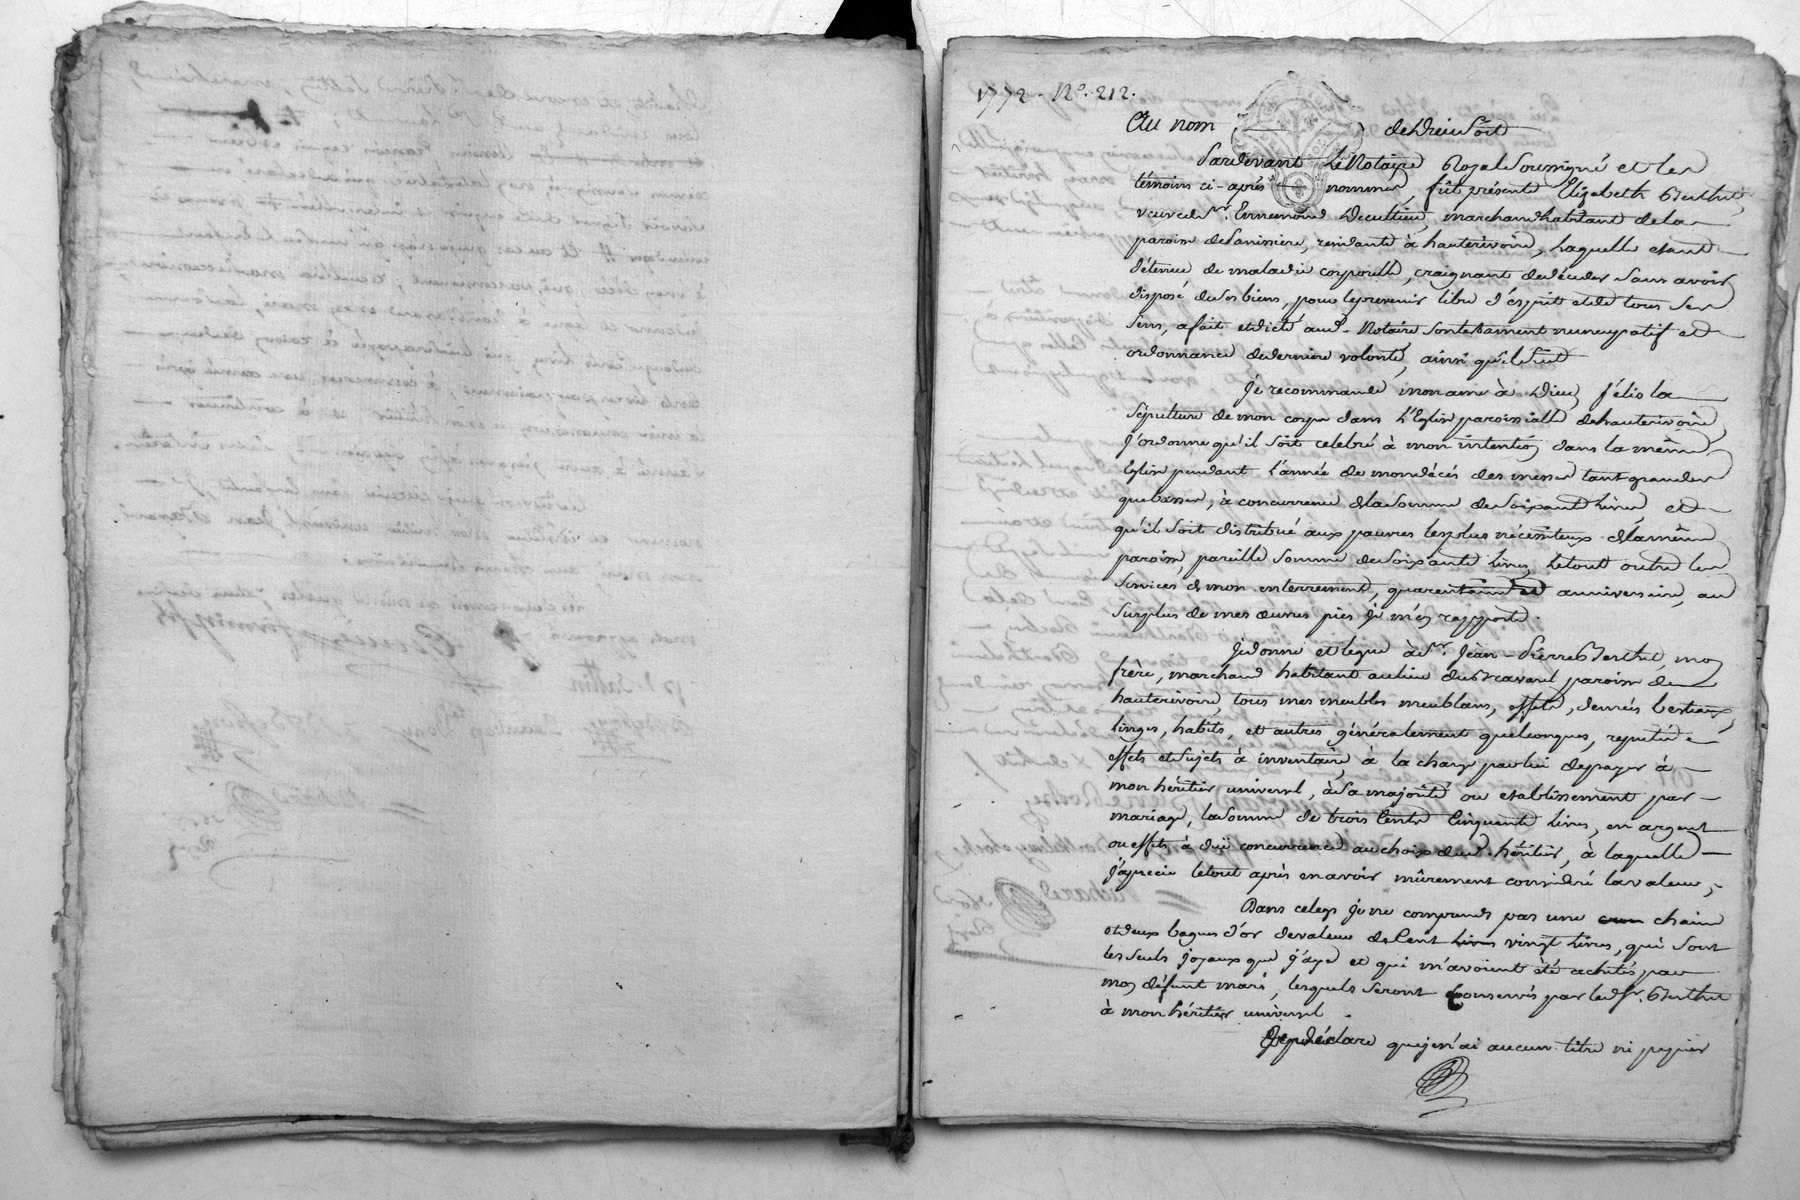 1772 - N.º 212.
Au nom de Dieu soit
Pardevant Le Notaire Royal soussigné et les
témoins ci-après nommés, fût présente Elizabeth Berthet,
veuve de Sr. Ennemond Decultieu, marchand habitant de la
paroisse de Savissiere, residante à hauterivoire, Laquelle etant
détenue de maladie corporelle, craignant de décéder sans avoir
disposé de ses biens, pour le prevenir libre d'esprit et de tous ses
sens, a fait et dicté aud. Notaire son testament nuncupatif et
ordonnance de derniere volonté, ainsi qu'il suit
Je recommande mon ame à Dieu, j'élis la
sépulture de mon corps dans L'Eglise paroissialle de hauterivoire,
J'ordonne qu'il soit celebré à mon intention dans la même
Eglise pendant L'année de mon décés des messes tant grandes
que basses, à concurrence de la somme de soixante Livres, et
qu'il soit distribué aux pauvres les plus nécessiteux de la même
paroisse, pareille somme de soixante Livres, Le tout outre les
services de mon enterrement, quarentaine et anniversaire, au
surplus de mes œuvres pies je m'en rapporte.
Je donne et legue à Sr. Jean-Pierre Berthet, mon
frère, marchand habitant au lieu du paroisse de
hauterivoire, tous mes meubles meublans, effets, denrées bestiaux,
Linges, habits, et autres généralement quelconques, reputés
effets et sujets à inventaire, à la charge par lui de payer à
mon héritier universel, à sa majorité ou etablissement par
mariage, la somme de trois Cents Cinquante Livres, en argent
ou effets à due concurrence au choix dud. héritier, à laquelle
j'apprecie le tout après en avoir mûrement consideré la valeur,
Dans ce legs je ne comprends pas une chaine
et deux bagues d'or de valeur de Cent Livres vingt Livres, qui sont
les seuls joyaux que j'aye et qui m'avoient été achetés par
mon défunt mari, lesquels seront conservés par led. Sr. Berthet
à mon héritier universel.
Je déclare que je n'ai aucun titre ni papier